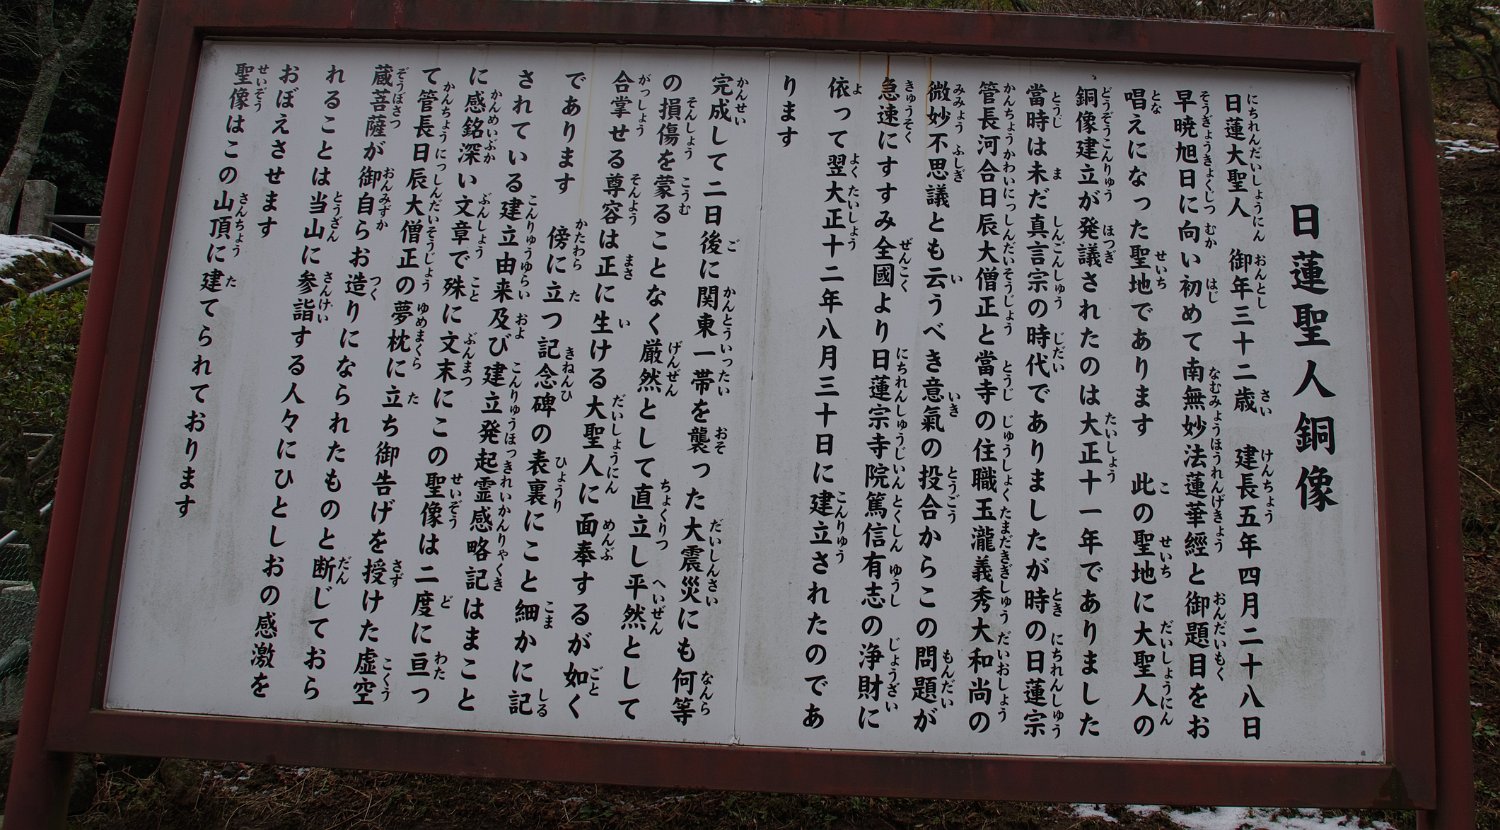 日蓮聖人銅像
日蓮大聖人　御年三十二歳　建長五年四月二十八日
早暁旭日に向い初めて南無妙法蓮華經と御題目をお
唱えになった聖地であります　此の聖地に大聖人の
銅像建立が発議されたのは大正十一年でありました
當時は未だ真言宗の時代でありましたが時の日蓮宗
管長河合日辰大僧正と當寺の住職玉瀧義秀大和尚の
微妙不思議とも云うべき意氣の投合からこの問題が
急速にすすみ全國より日蓮宗寺院篤信有志の浄財に
依って翌大正十二年八月三十日に建立されたのであ
ります
完成して二日後に関東一帯を襲った大震災にも何等
の損傷を蒙ることなく厳然として直立し平然として
合掌せる尊容は正に生ける大聖人に面奉するが如く
であります　傍に立つ記念碑の表裏にこと細かに記
されている建立由来及び建立発起霊感略記はまこと
に感銘深い文章で殊に文末にこの聖像は二度に亘っ
て管長日辰大僧正の夢枕に立ち御告げを授けた虚空
蔵菩薩が御自らお造りになられたものと断じておら
れることは当山に参詣する人々にひとしおの感激を
おぼえさせます
聖像はこの山頂に建てられております